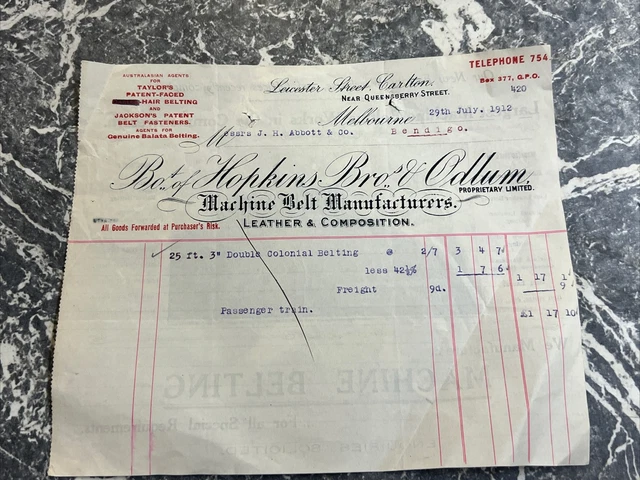 AUSTRALASIAN AGENTS
FOR
TAYLOR'S
PATENT-FACED
-HAIR BELTING
AND
JACKSON'S PATENT
BELT FASTENERS.
AGENTS FOR
Genuine Balata Belting.
TELEPHONE 754
Box 377, G.P.O.
420
Leicester Street, Carlton,
NEAR QUEENSBERRY STREET.
Melbourne 29th July. 1912
Messrs J. H. Abbott & Co. Bendigo.
Bot. of Hopkins. Bros. & Odlum.
PROPRIETARY LIMITED.
Machine Belt Manufacturers.
LEATHER & COMPOSITION.
All Goods Forwarded at Purchaser's Risk.
25 ft. 3" Double Colonial Belting @ 2/7 3 4 7
less 42½% 1 7 6 1 17 1
Freight 9d. 9
Passenger train. £1 17 10
MACHINE BELTING
For all Special Requirements